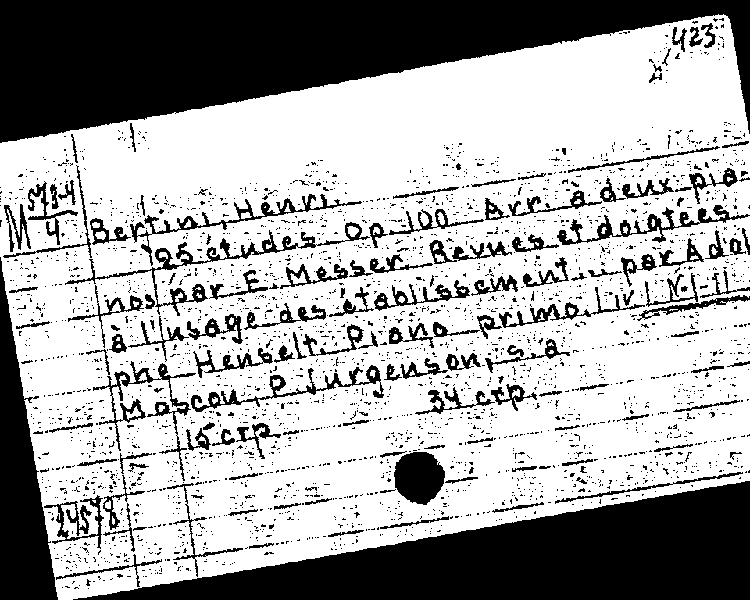 423
M 573-4
4
Bertini, Henri.
25 études. Op. 100. Arr. à deux pia-
nos par E. Messer. Revues et doigtées
à l'usage des établissement... par Adol
phe Henselt. Piano primo.
Moscou, P. Jurgenson, s. a
15 стр. 34 стр.
24578